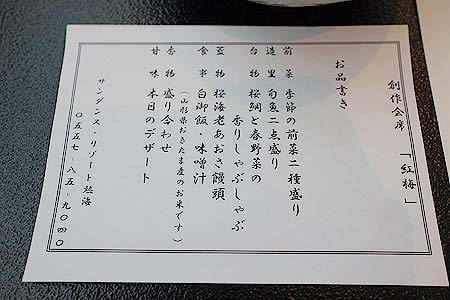 創作会席 「紅梅」
お品書き
前菜 季節の前菜二種盛り
造里 旬魚二点盛り
台物 桜鯛と春野菜の
香りしゃぶしゃぶ
蓋物 桜海老あおさ饅頭
食事 白御飯・味噌汁
(山形県おきたま産のお米です)
香物 盛り合わせ
甘味 本日のデザート
サンダンス・リゾート熱海
〇五五七-八五-九〇四〇